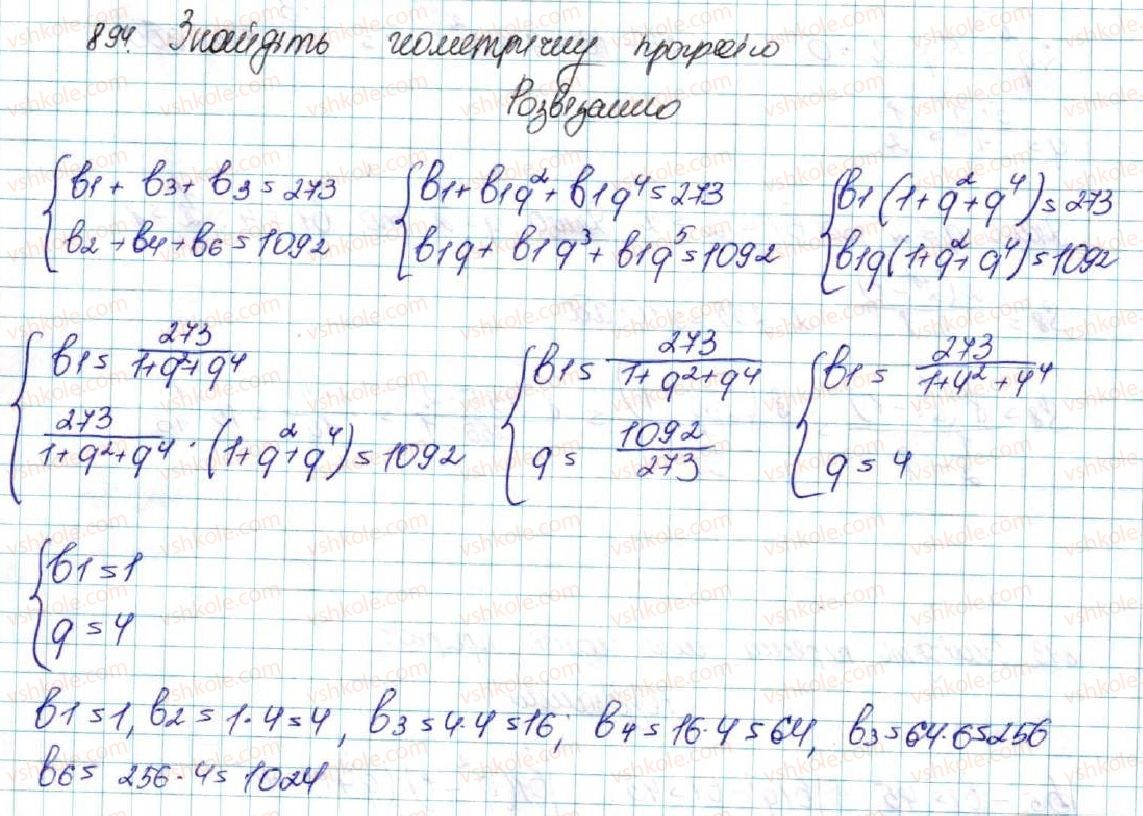 894. Знайдіть геометричну прогресію
Розв'язання
{ b1 + b3 + b3 = 273
b2 + b4 + b6 = 1092
{ b1 + b1q² + b1q⁴ = 273
b1q + b1q³ + b1q⁵ = 1092
{ b1(1+q²+q⁴) = 273
b1q(1+q²+q⁴) = 1092
{ b1 = 273/(1+q²+q⁴)
273/(1+q²+q⁴) · (1+q²+q⁴) = 1092
{ b1 = 273/(1+q²+q⁴)
q = 1092/273
{ b1 = 273/(1+4²+4⁴)
q = 4
{ b1 = 1
q = 4
b1 = 1, b2 = 1·4 = 4, b3 = 4·4 = 16; b4 = 16·4 = 64, b3 = 64·6 = 256
b6 = 256·4 = 1024